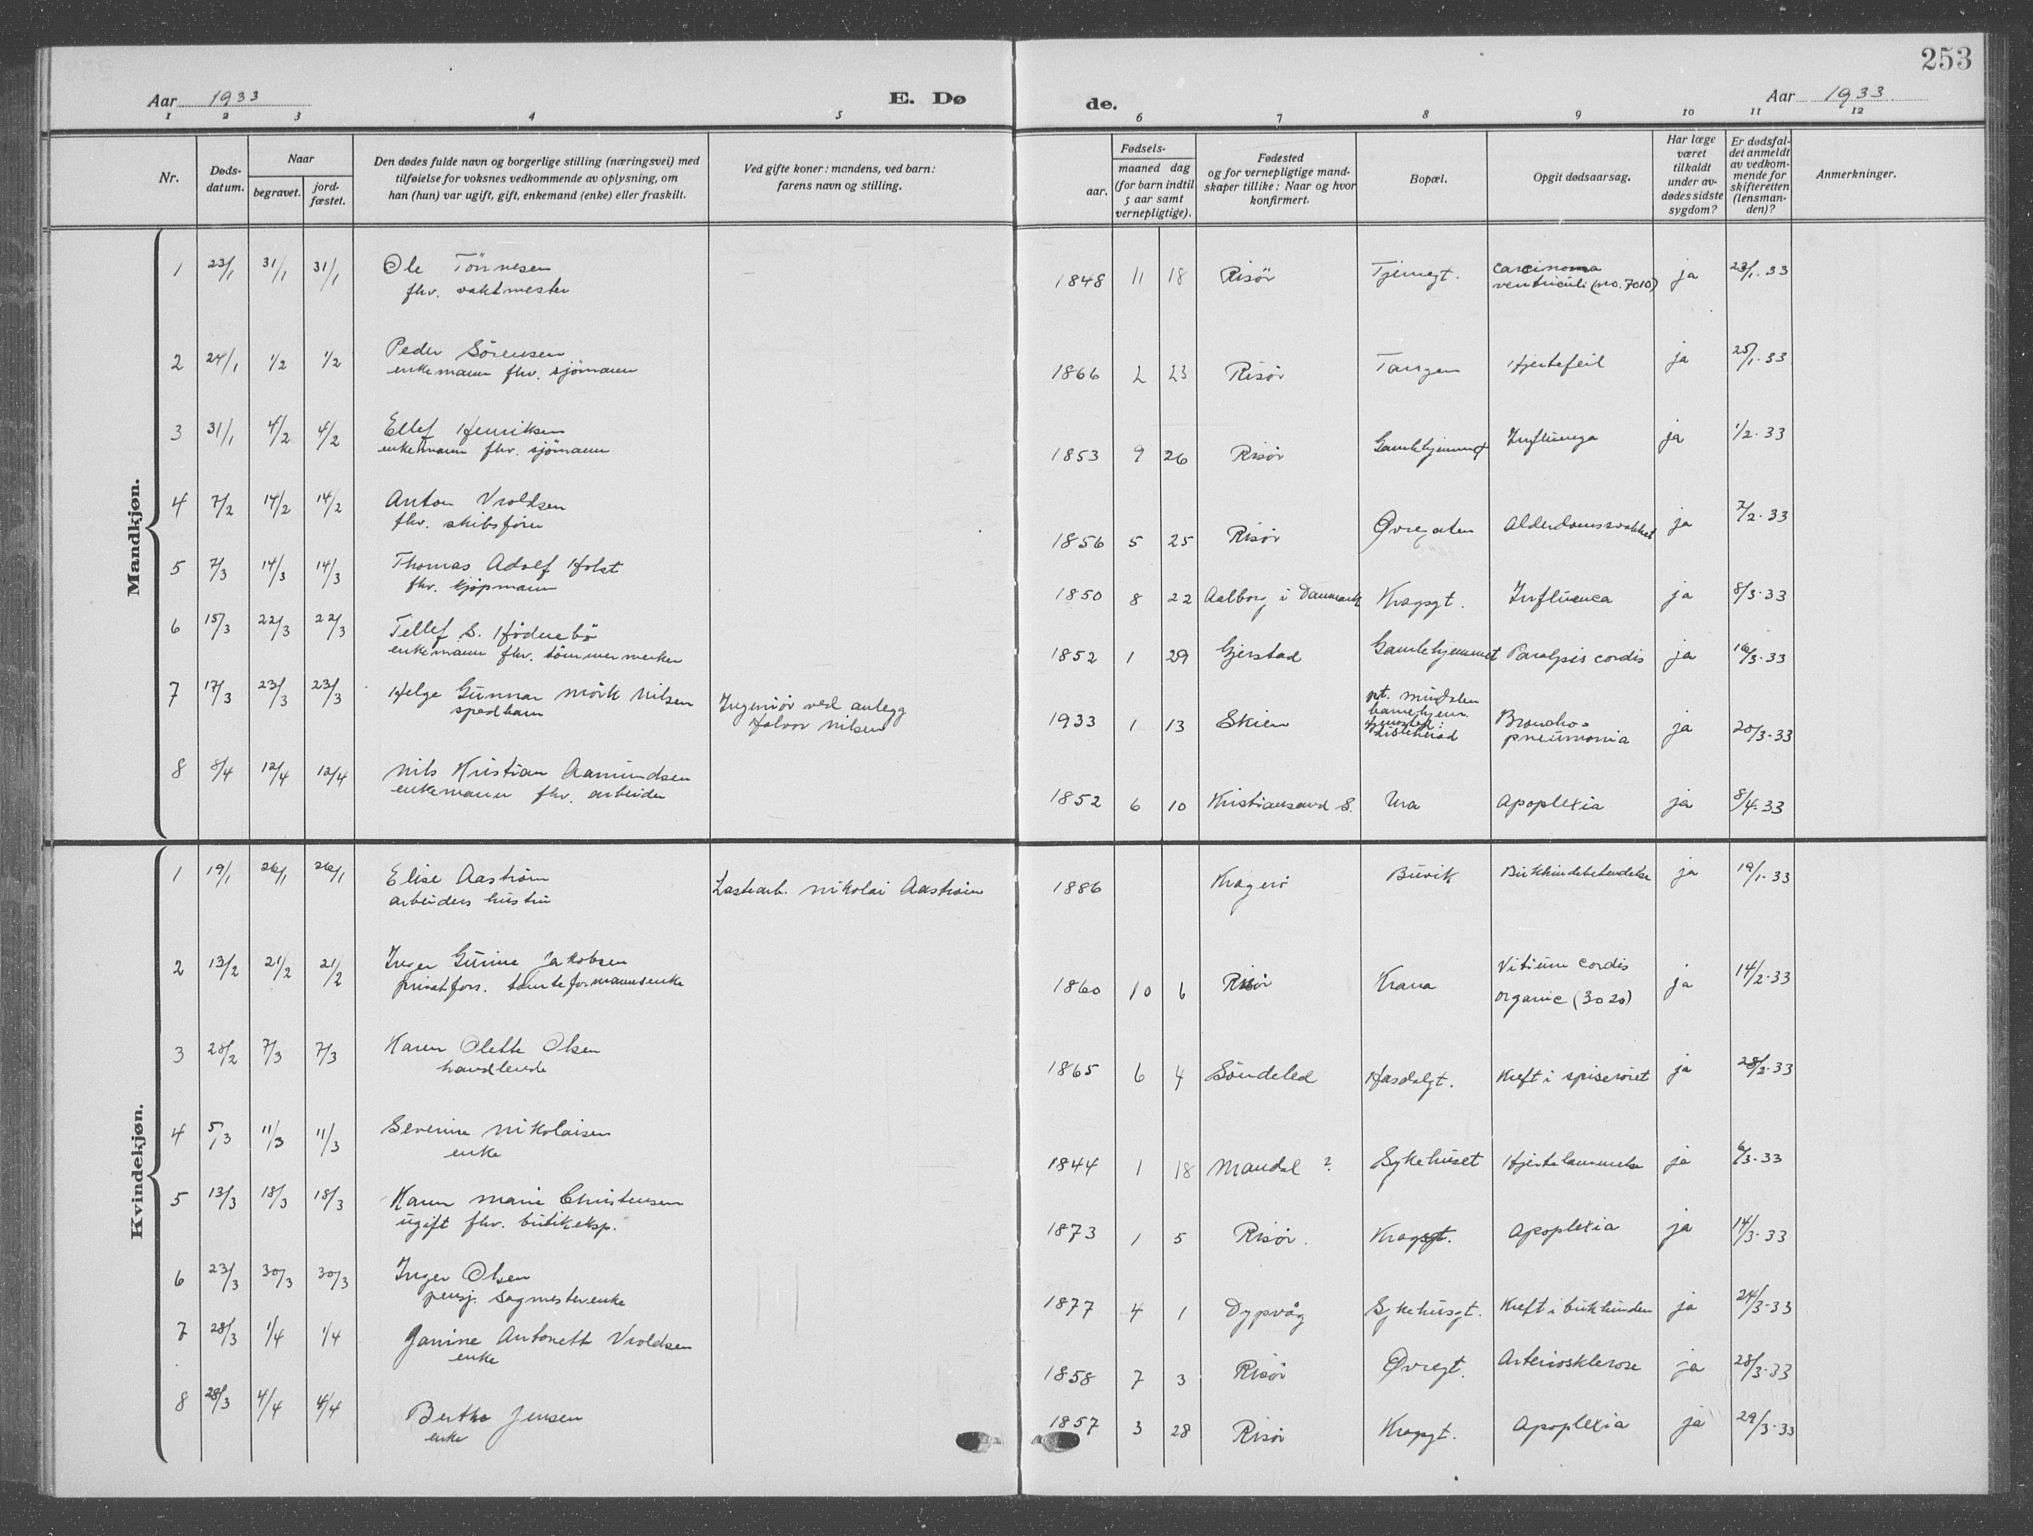 253
Aar 1933
E. Dø
de.
Aar 1933
1 2 3 4 5 6 7 8 9 10 11 12
Nr.
Døds-
datum.
Naar
begravet.
jord-
fæstet.
Den dødes fulde navn og borgerlige stilling (næringsvei) med
tilføielse for voksnes vedkommende av oplysning, om
han (hun) var ugift, gift, enkemand (enke) eller fraskilt.
Ved gifte koner: mandens, ved barn:
farens navn og stilling.
Fødsels-
aar.
maaned dag
(for barn indtil
5 aar samt
vernepligtige).
Fødested
og for vernepligtige mand-
skaper tillike: Naar og hvor
konfirmert.
Bopæl.
Opgit dødsaarsag.
Har læge
været
tilkaldt
under av-
dødes sidste
sygdom?
Er dødsfal-
det anmeldt
av vedkom-
mende for
skifteretten
(lensman-
den)?
Anmerkninger.
Mandkjøn.
1 23/1 31/1 31/1 Ole Tönnesen 1848 11 18 Risör Tjenngt. Carcinoma ja 23/1. 33
fhv. vaktmester ventriculi (no. 7010)
2 24/1 1/2 1/2 Peder Sörensen 1866 2 23 Risör Tangen Hjertefeil ja 25/1. 33
enkemann fhv. sjömann
3 31/1 4/2 4/2 Ellef Henriksen 1853 9 26 Risör Gamlehjemmet Influenza ja 1/2. 33
enkemann fhv. sjömann
4 7/2 14/2 14/2 Anton Vroldsen 1856 5 25 Risör Øvregaten Alderdomssvakhet ja 7/2. 33
fhv. skibsförer
5 7/3 14/3 14/3 Thomas Adolf Holst 1850 8 22 Aalborg i Danmark Kragsgt. Influenca ja 8/3. 33
fhv. kjøpmann
6 15/3 22/3 22/3 Tellef S. Hödnebö 1852 1 29 Gjerstad Gamlehjemmet Paralysis cordis ja 16/3. 33
enkemann fhv. tömmermerker
7 17/3 23/3 23/3 Helge Gunnar Mörk Nilsen Ingeniör ved anlegg 1933 1 13 Skien pt. Broncho- ja 20/3. 33
spedbarn Halvor Nilsen pneumonia
8 8/4 12/4 12/4 Nils Kristian Aamundsen 1852 6 10 Kristiansand S. Ura Apoplexia ja 8/4. 33
enkemann fhv. arbeider
Kvindekjøn.
1 19/1 26/1 26/1 Elise Aaström Lastearb. Nikolai Aaström 1886 Kragerö Buvik Bukhindebetendelse ja 19/1. 33
arbeiders hustru
2 13/2 21/2 21/2 Inger Gurine Jakobsen 1860 10 6 Risör Krana Vitium cordis ja 14/2. 33
privat fors. tomteformannsenke organic (3020)
3 28/2 7/3 7/3 Karen Olette Olsen 1865 6 4 Söndeled Hasdalgt. Kreft i spiseröret ja 28/2. 33
handlende
4 5/3 11/3 11/3 Severine Nikolaisen 1844 1 18 Mandal ? Sykehuset Hjertelammelse ja 6/3. 33
enke
5 13/3 18/3 18/3 Karen Marie Christensen 1873 1 5 Risör. Kragsgt. Apoplexia ja 14/3. 33
ugift fhv. butikeksp.
6 23/3 30/3 30/3 Inger Olsen 1877 4 1 Dypvåg Sykehusgt. Kreft i bukhinden ja 24/3. 33
pensj. sagmesterenke
7 28/3 1/4 1/4 Janine Antonette Vroldsen 1858 7 3 Risör Øvregt. Arteriosklerose ja 28/3. 33
enke
8 28/3 4/4 4/4 Berthe Jensen 1857 3 28 Risör Kragsgt. Apoplexia ja 29/3. 33
enke